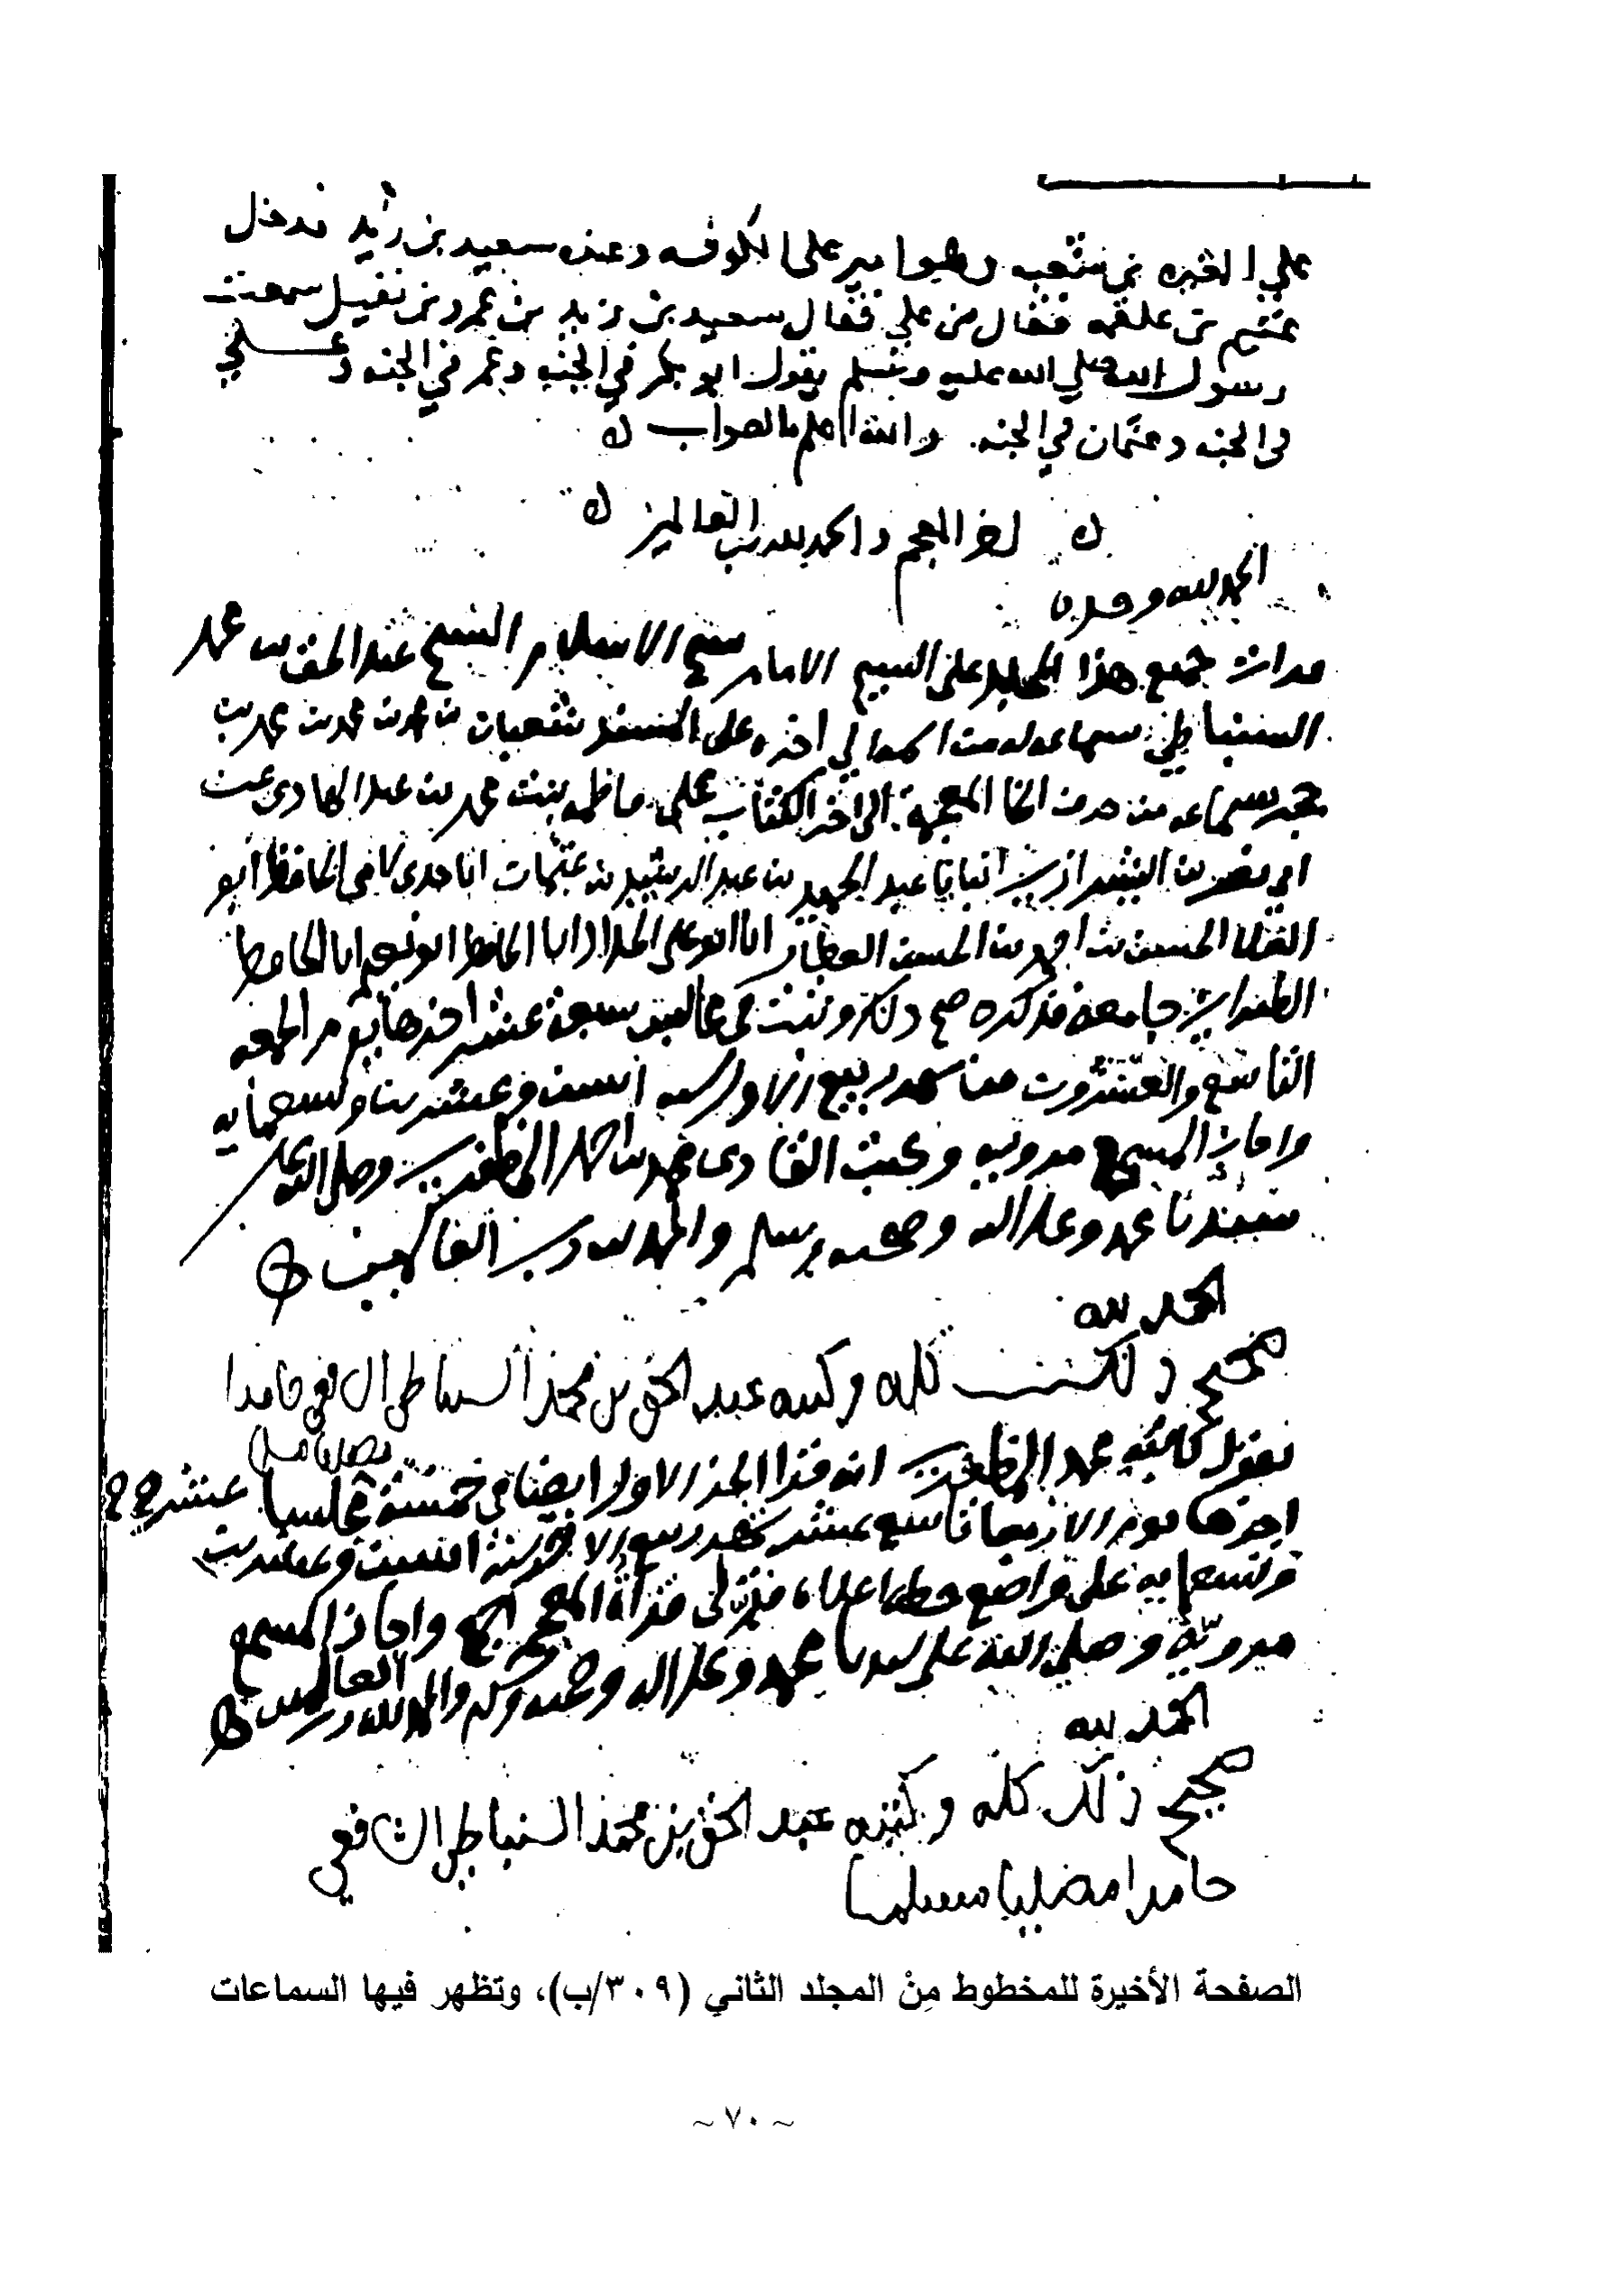 على المغيره بن شعبه وهو امير على الكوفه وعنده سعيد بن زيد فدخل
بن علقمه فقال من علي فقال سعيد بن زيد بن عمرو بن نفيل سمعت
رسول الله صلي الله عليه وسلم يقول ابو بكر في الجنه وعمر في الجنه وعلي
في الجنه وعثمان في الجنه والله اعلم بالصواب
اخر المعجم والحمد لله رب العالمين
الحمد لله وحده
قرات جميع هذا المجلد على الشيخ الامام شيخ الاسلام الشيخ عبد الحق بن محمد
السنباطي سماعه له من الى اخره على المسند شعبان بن محمد بن محمد بن محمد بن
حجر سماعه من حرف الخا المعجمة الى اخر الكتاب على فاطمه بنت محمد بن عبد الهادي عن
ابي نصر بن الشيرازي انبانا عبد الحميد بن عبد الرشيد بن انا جدي لامي الحافظ ابو
العلا الحسن بن احمد بن الحسن العطار انا ابو علي الحداد انا الحافظ ابو نعيم انا الحافظ
الطبراني جامعه فذكره صح ذلك وثبت في مجالس سبعة عشر اخرها يوم الجمعه
التاسع والعشرون من شهر ربيع الاول سنه اثنين وعشرين وتسعمايه
واجاز المسمع مرويه وكتب القاري محمد بن احمد المظفري وصلى الله على
سيدنا محمد وعلى اله وصحبه وسلم والحمد لله رب العالمين
الحمد لله
صحيح ذلك كله وكتبه عبد الحق بن محمد السنباطي الشافعي حامدا
مصليا مسلما
يقول كاتبه محمد المظفري انه قرا الجزء الاول ايضا في خمسة عشر مجلسا
اخرها يوم الاربعا تاسع عشر شهر ربيع الاخر سنة اثنين وعشرين
وتسعمايه على واضع خطه اعلاه قراة المعجم واجاز المسمع
مرويه وصلى الله على سيدنا محمد وعلى اله وصحبه وسلم والحمد لله رب العالمين
الحمد لله
صحيح ذلك كله وكتبه عبد الحق بن محمد السنباطي الشافعي
حامدا مصليا مسلما
الصفحة الأخيرة للمخطوط مِنْ المجلد الثاني (٣٠٩/ب)، وتظهر فيها السماعات
~ ٧٠ ~